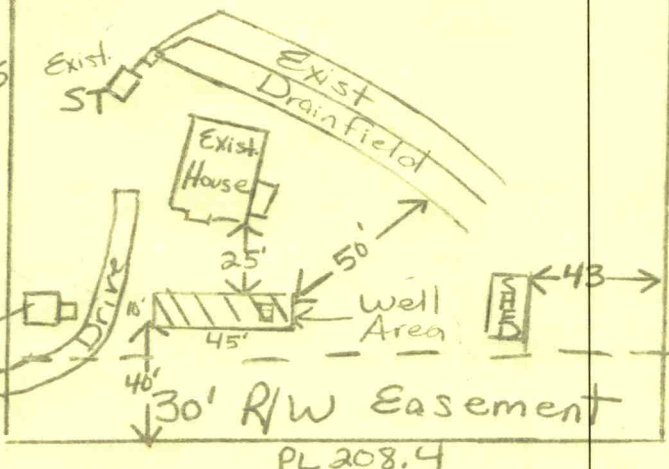 Exist.
ST
Exist
Drainfield
Exist.
House
25'
50'
Drive
10'
45'
Well
Area
SHED
43
40'
30' R/W Easement
PL 208.4